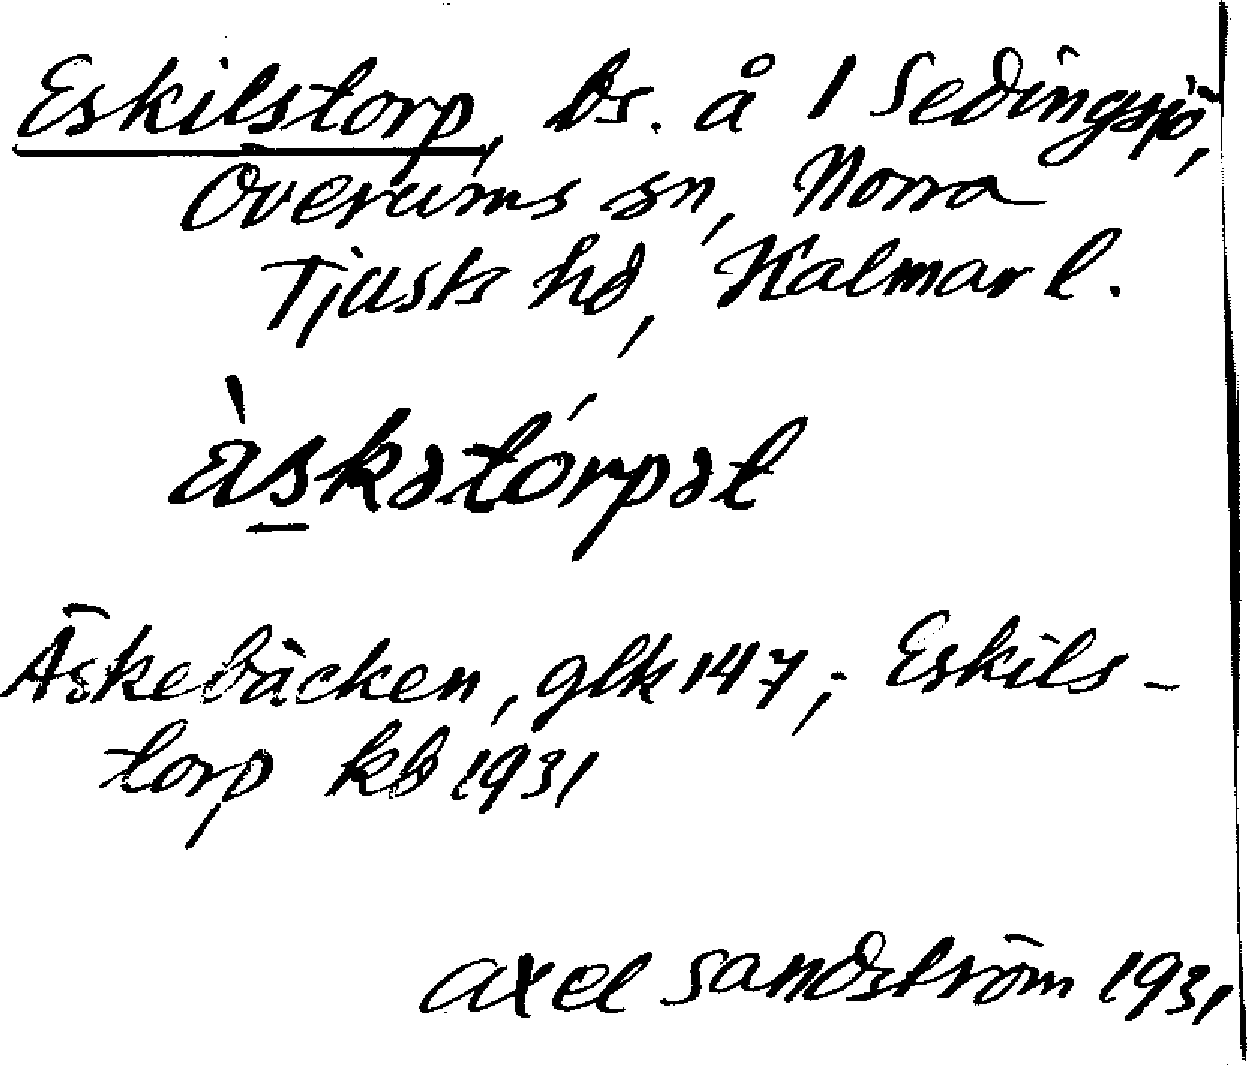 Eskilstorp, bs. å 1 Sedingsjö,
Överums sn, Norra
Tjusts hd, Kalmar l.
àskətórpət
Äskebäcken, glk 147; Eskils-
torp kb 1931
Axel Sandström 1931